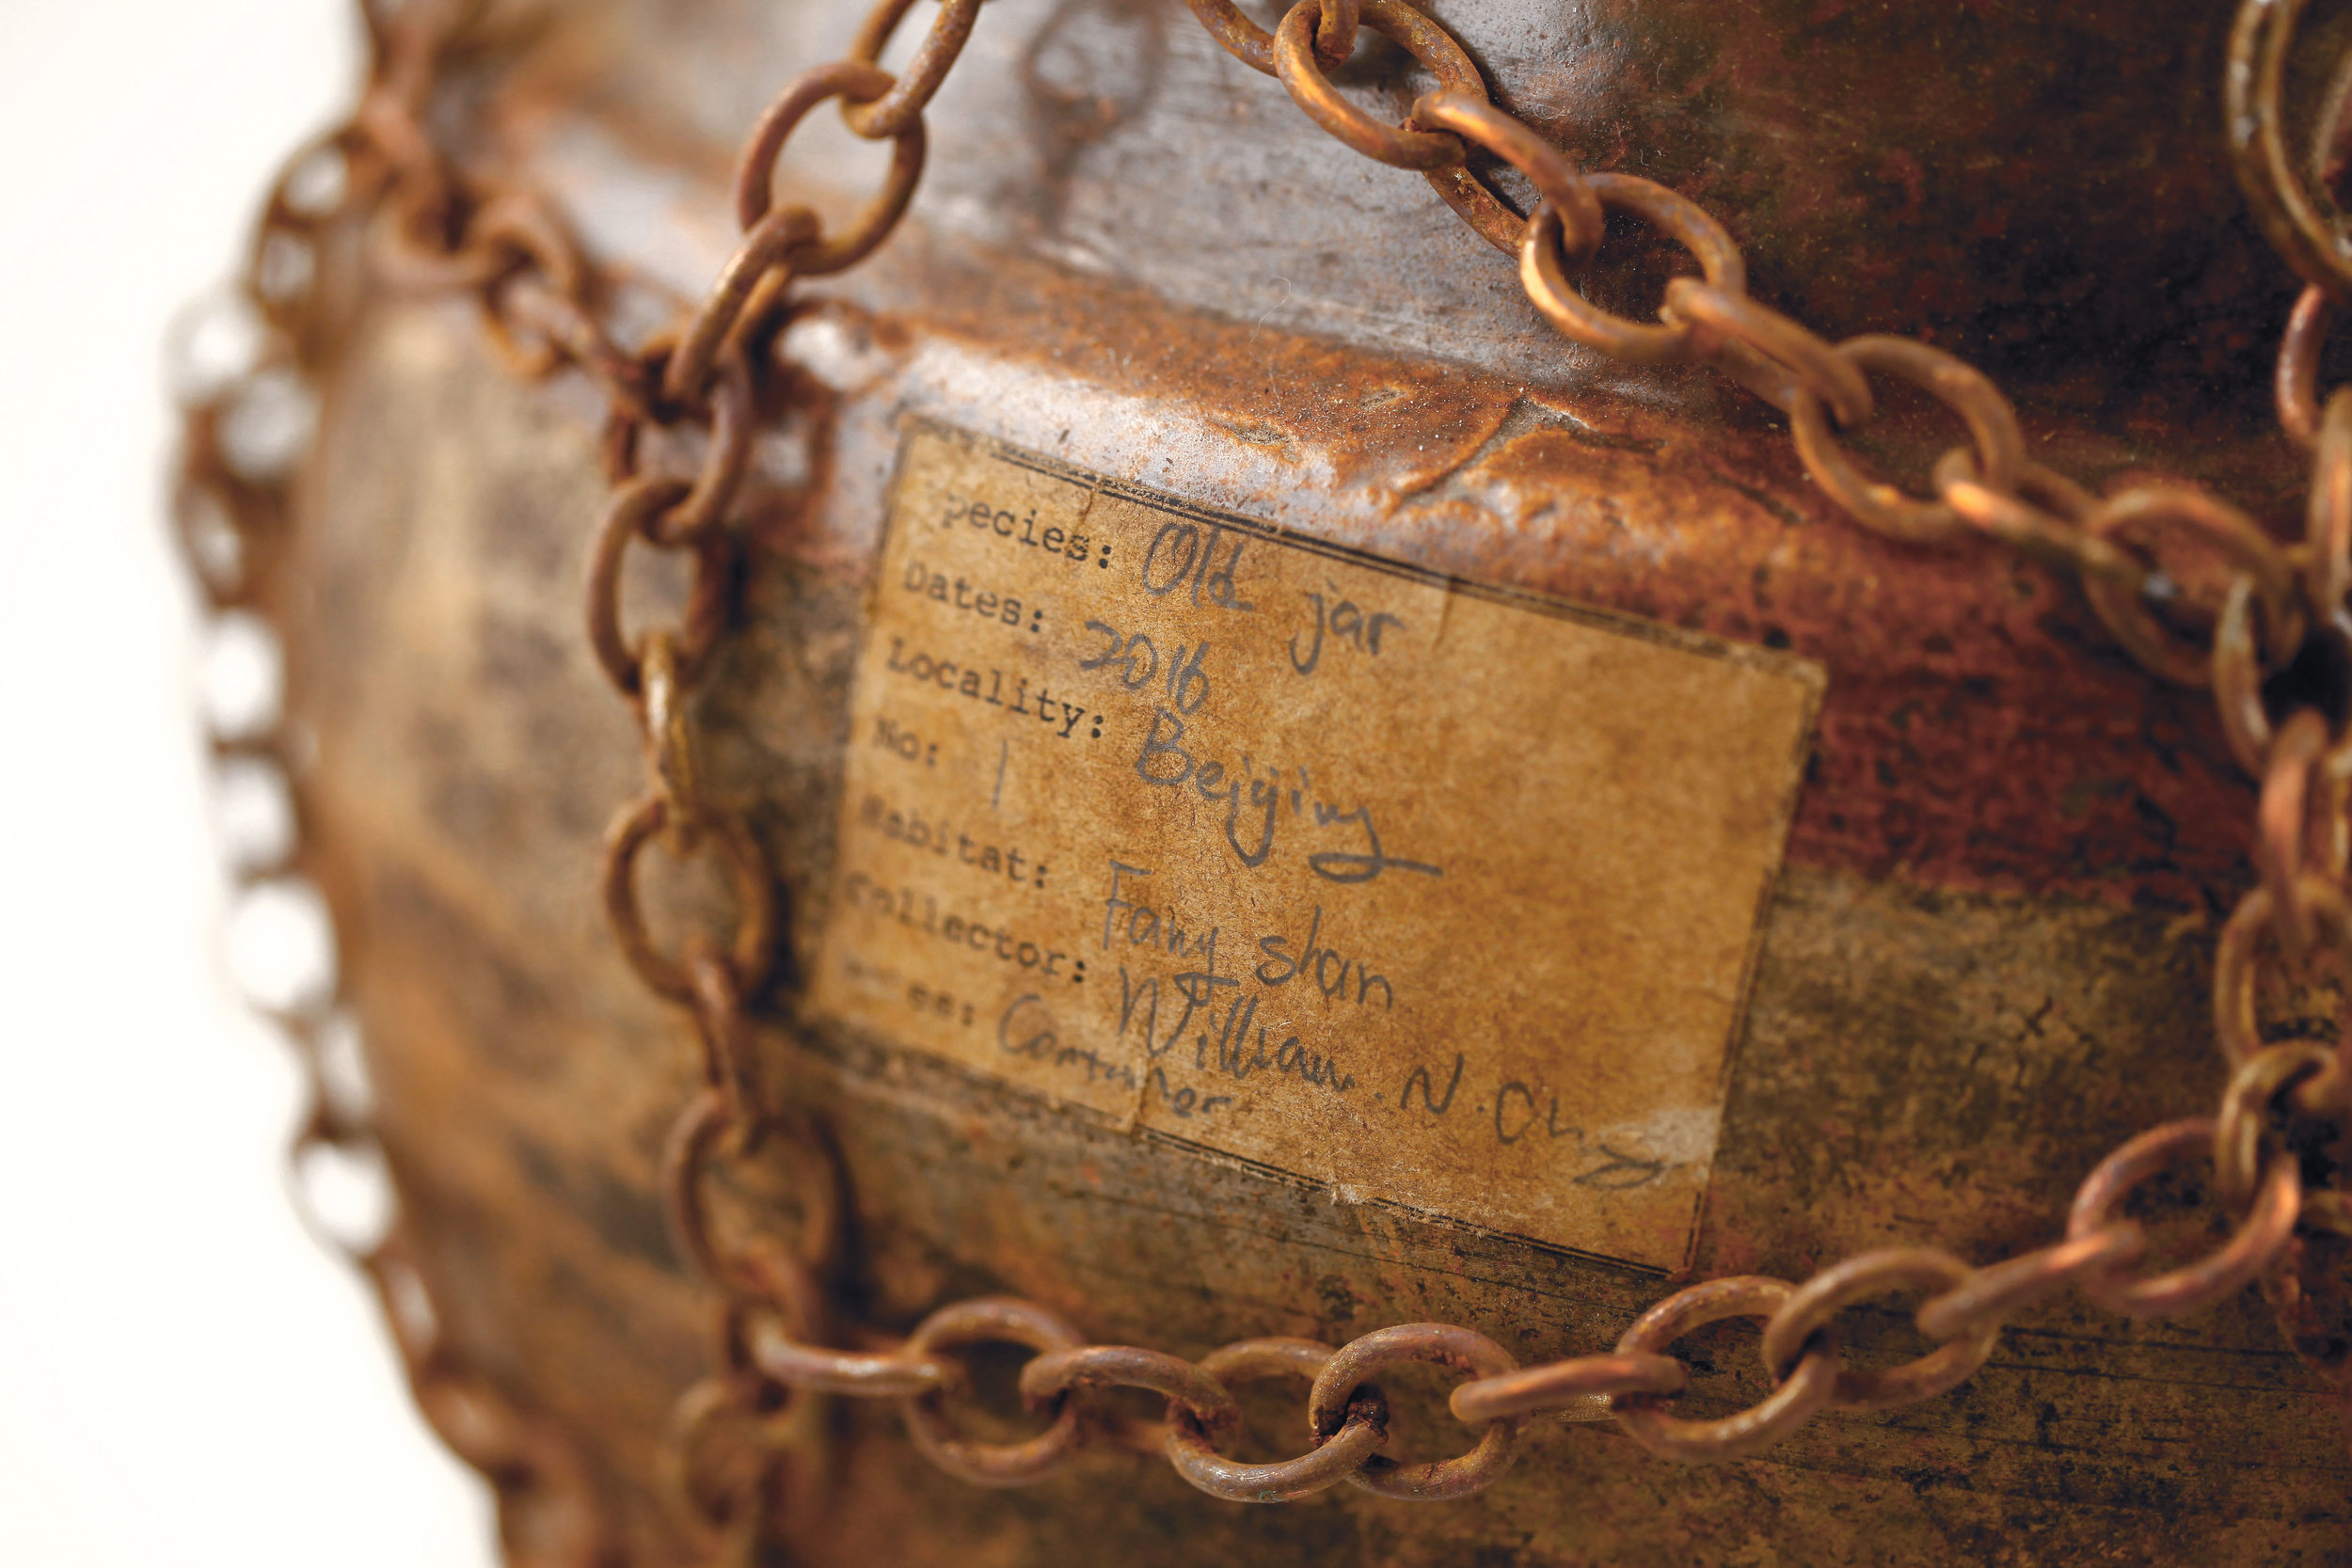 pecies: Old jar
Dates: 2016
Locality: Beijing
No: 1
Habitat: Fang shan
Collector: William. N. Ch
es: Container